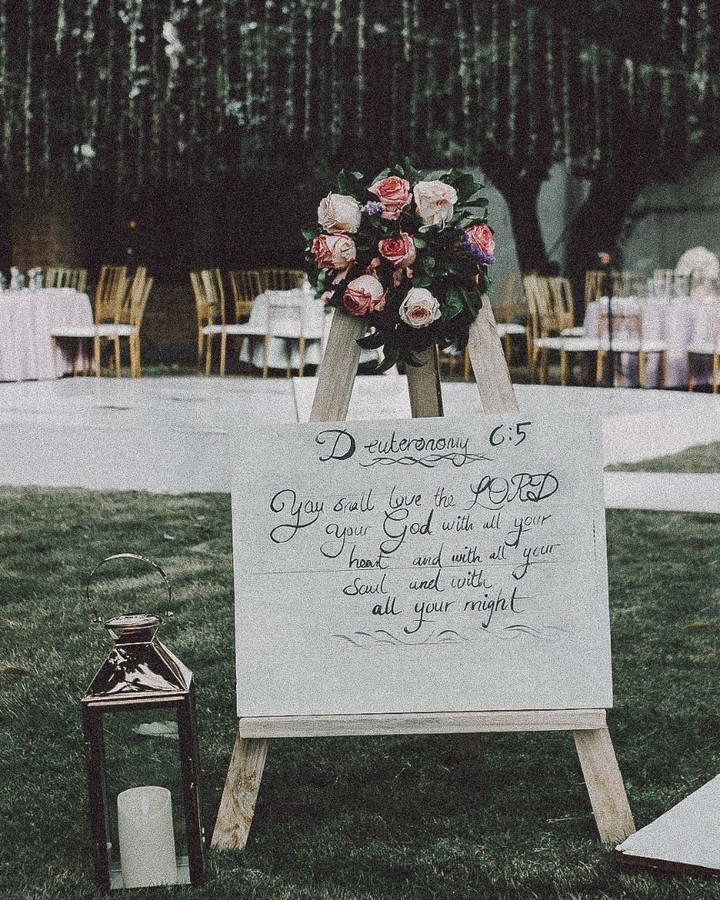 Deuteronomy 6:5
You shall love the LORD
your God with all your
heart and with all your
soul and with
all your might